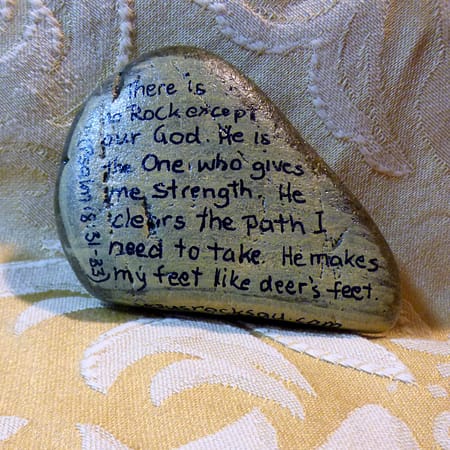 There is
no Rock except
our God. He is
the One who gives
me strength. He
clears the path I
need to take. He makes
my feet like deer's feet.
Psalm 18:31-33